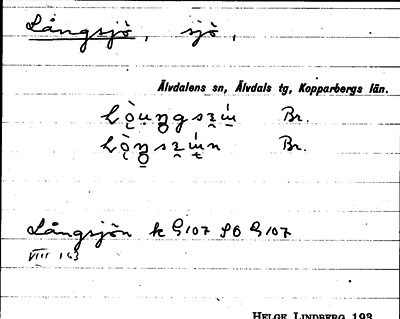 Långsjö, sjö,
Älvdalens sn, Älvdals tg, Kopparbergs län.
Br.
Br.
Långsjön k G107 SB G107
VIII 163
HELGE LINDBERG 193